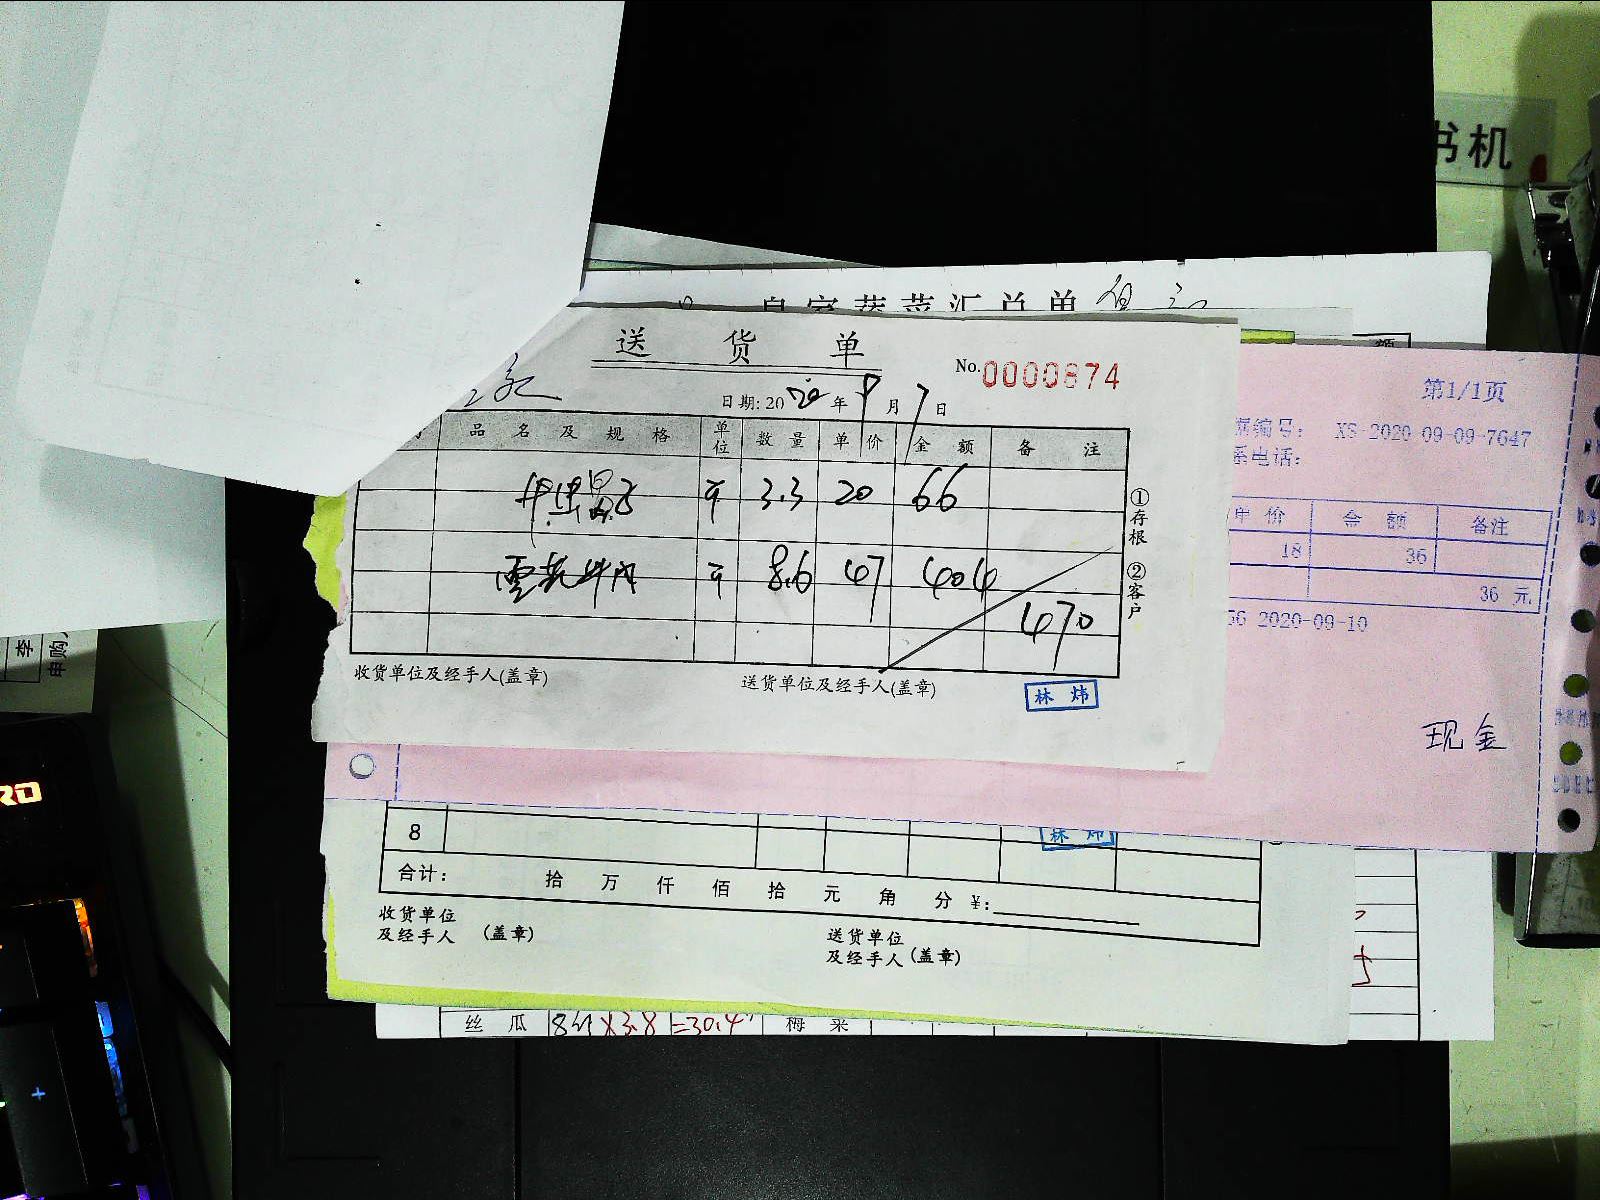 书机
皇家蔬菜汇总单
送货单
No.0000874
日期: 2020年9月7日
品名及规格 单位 数量 单价 金额 备注
3.3 20 66
雪花牛肉 8.6 47 404
470
①存根
②客户
收货单位及经手人(盖章) 送货单位及经手人(盖章)
林炜
第1/1页
编号: XS-2020-09-09-7647
系电话:
单价 金额 备注
18 36
36 元
56 2020-09-10
现金
8
林炜
合计: 拾 万 仟 佰 拾 元 角 分 ¥:
收货单位
及经手人 (盖章)
送货单位
及经手人 (盖章)
丝瓜 8斤×3.8=30.4 梅菜
李
申购人
RO
+